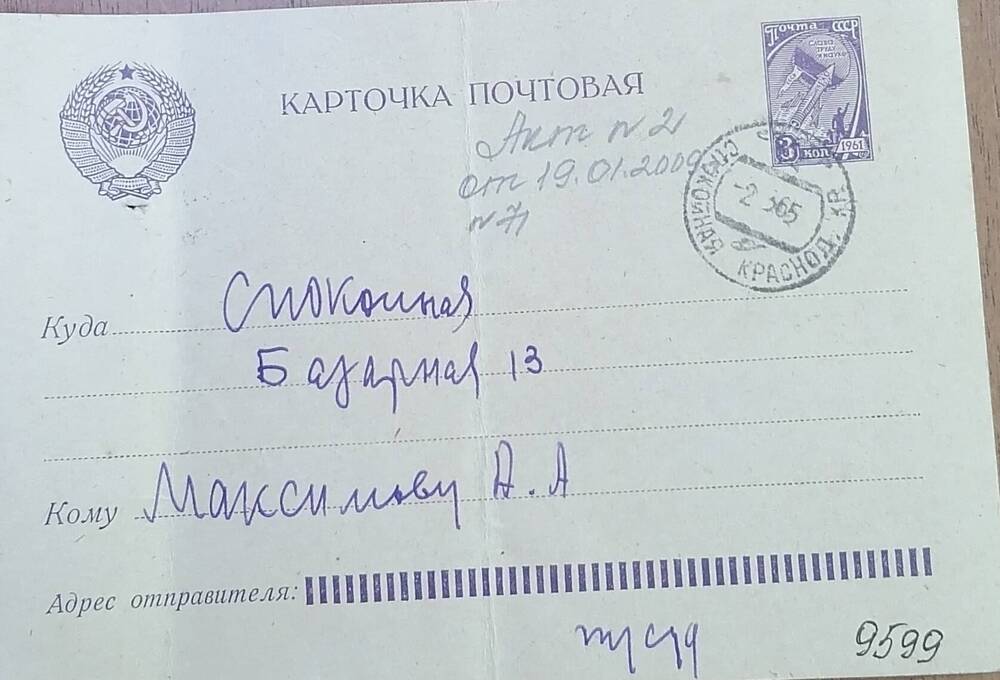 Почта СССР
СЛАВА
ТРУДУ
И НАУКЕ
3 коп 1961
КАРТОЧКА ПОЧТОВАЯ
Акт № 2
от 19.01.2009
№ 71
СПОКОЙНАЯ
-2 65
КРАСНОД. КР.
Куда Спокойная
Базарная 13
Кому Максимову А. А
Адрес отправителя:
9599